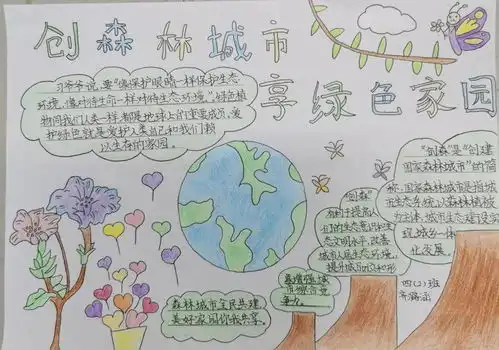 创森林城市
享绿色家园
习爷爷说,要"像保护眼睛一样保护生态
环境,像对待生命一样对待生态环境。"绿色植
物同我们人类一样都是地球上的重要成员,爱
护绿色就是爱护人类自己和我们赖
以生存的家园。
"创森"是"创建
国家森林城市"的简
称,国家森林城市是指城
市生态系统以森林植被
为主体,城市生态建设实
现城乡一体
化发展。
"创森"
有利于提高人
们的生态意识和生
态文明水平,改善
城市人居生态环境,
提升城市的立和形
象增强城
市综合竞
争力。
森林城市全民共建
美好家园你我共享。
四(2)班